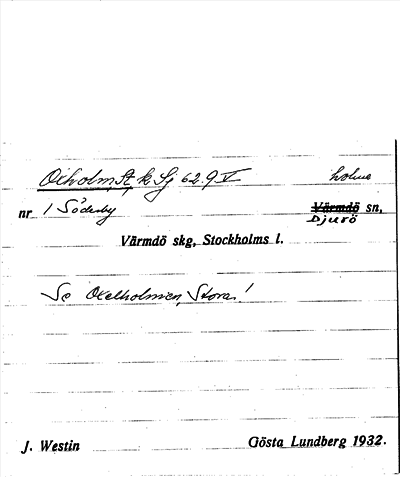 Oxholm, St. k. Sg 62.9 V holme
nr 1 Söderby Värmdö sn,
Djurö
Värmdö skg, Stockholms l.
Se Oxelholmen, Stora!
J. Westin Gösta Lundberg 1932.